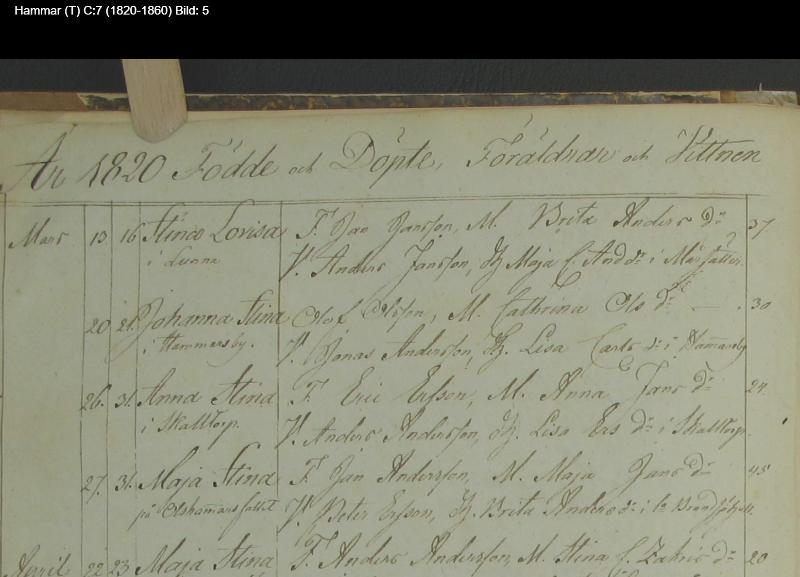 Hammar (T) C:7 (1820-1860) Bild: 5
År 1820 Födde och Döpte, Föräldrar och Vittnen
Mars 13 16 Stina Lovisa F. Jan Jansson, M. Brita Anders dr 37
i Lunna V. Anders Jansson, Maja C. And dr i
20 21. Johanna Stina Olof Olsson, M. Cathrina Ols dr — . 30
i Hammarsby. V. Jonas Andersson, Lisa Carls dr i Hamarsby
26. 31. Anna Stina F. Eric Ersson, M. Anna Jans dr 24
i Skalltorp. V. Anders Andersson, Lisa Ers dr i Skalltorp.
27. 31. Maja Stina F. Jan Andersson, M. Maja Jans dr 45
på Olshamarsfallet V. Peter Ersson, Brita Anders dr i
April 22 23 Maja Stina F. Anders Andersson, M. Stina C. Zakris dr 20